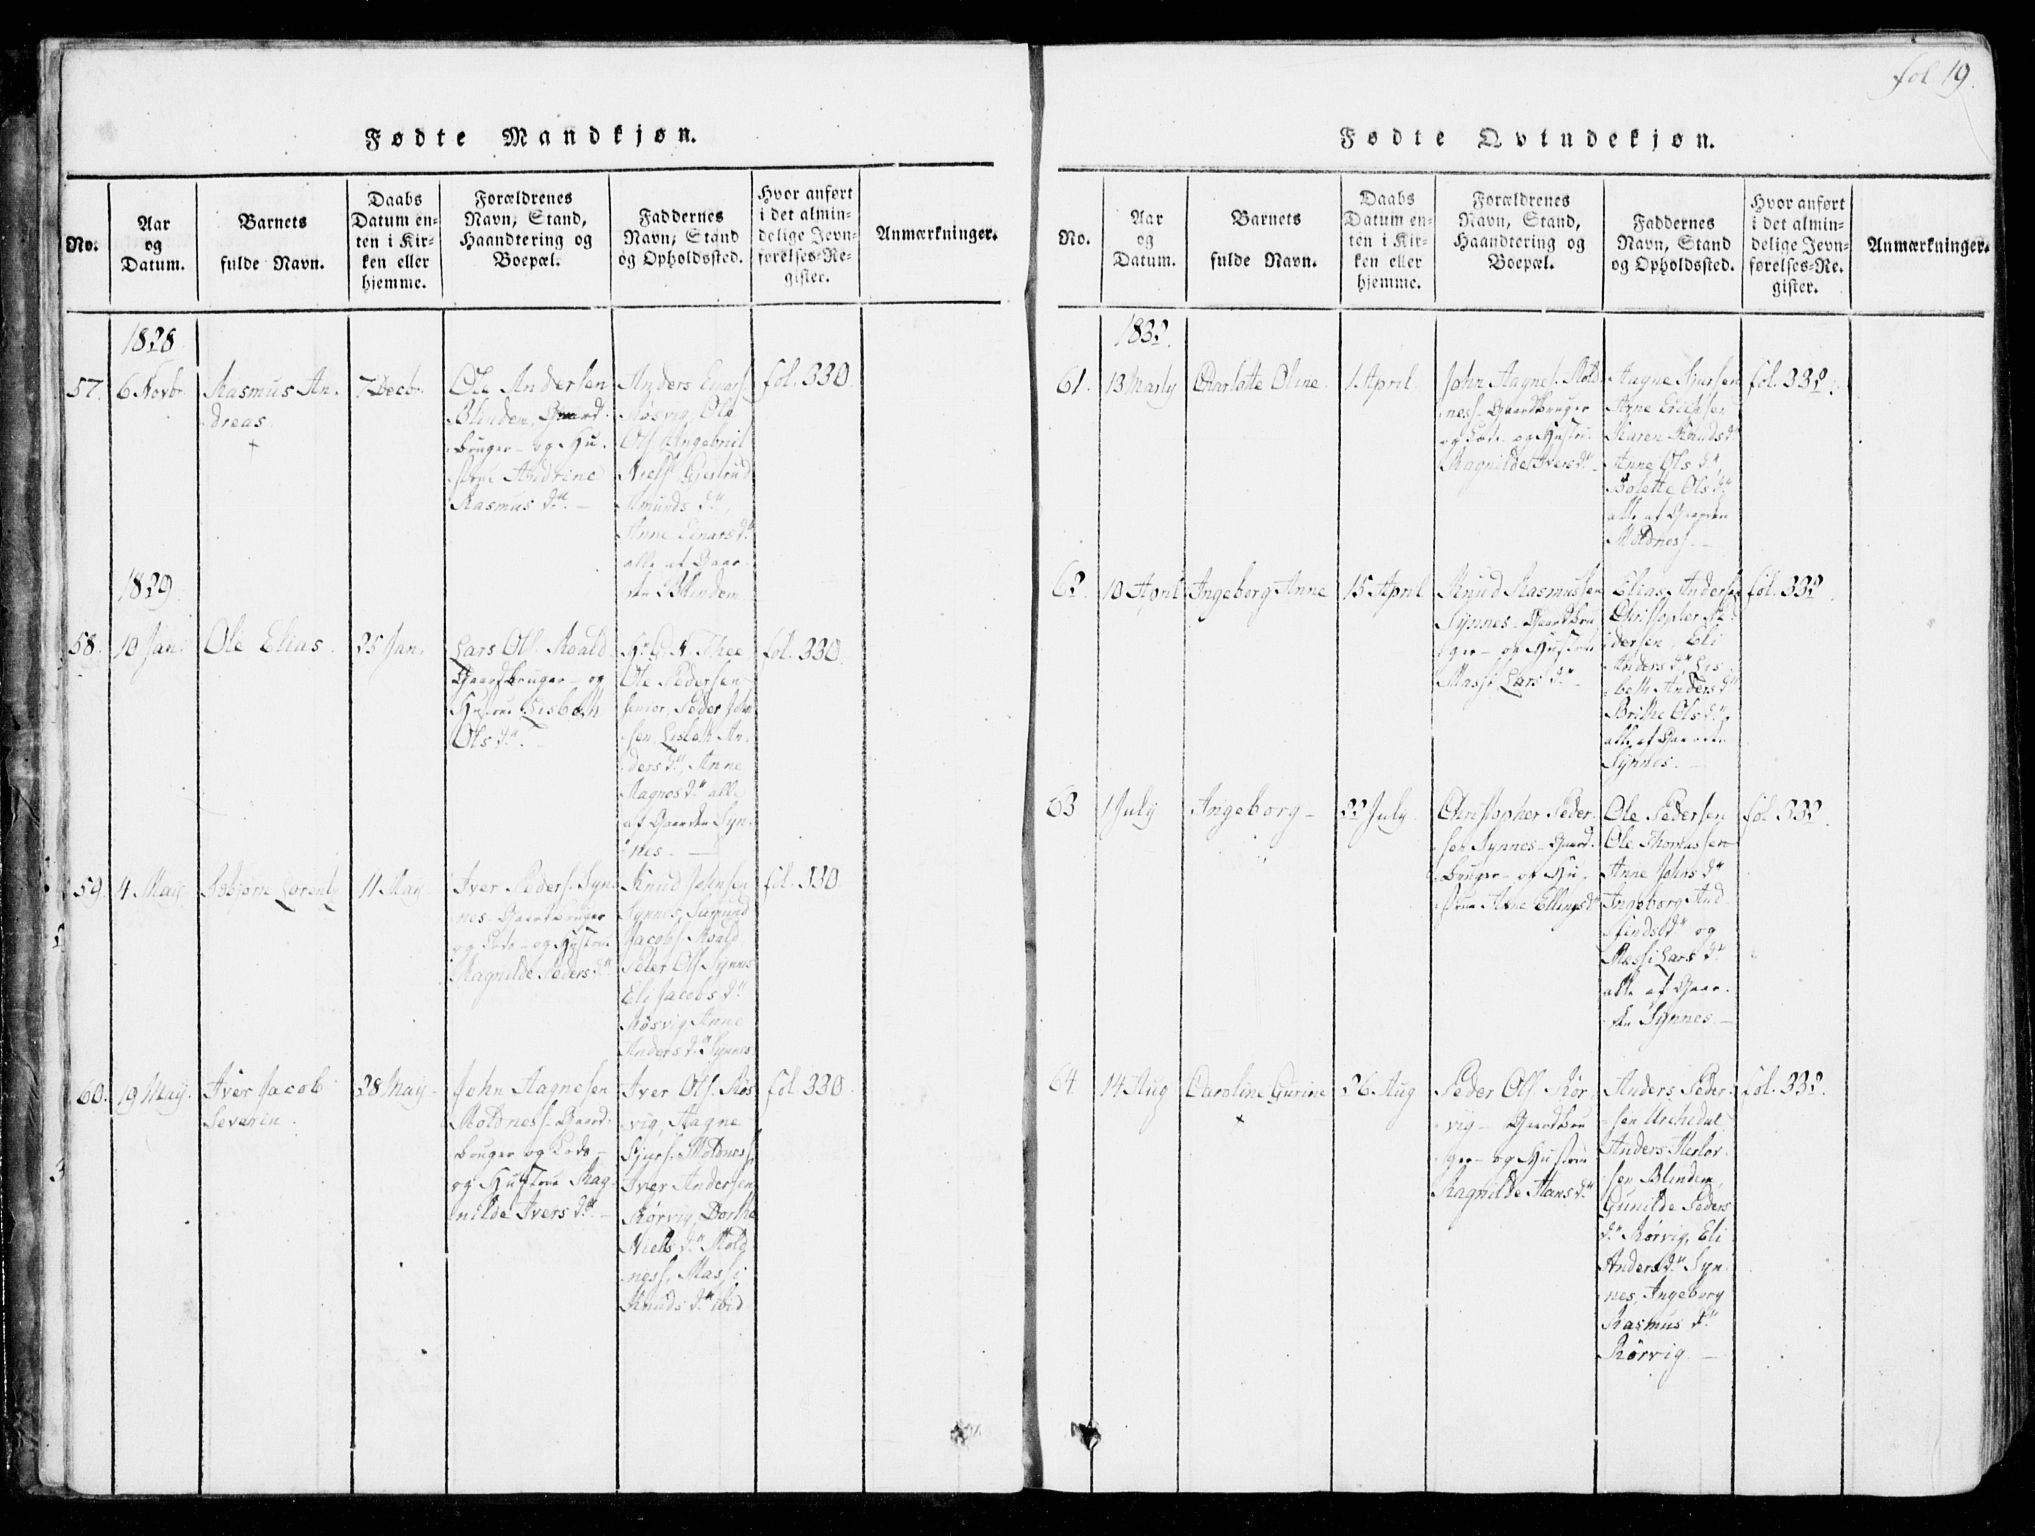 fol 19.
Fødte Mandkjøn.
No.
Aar
og
Datum.
Barnets
fulde Navn.
Daabs
Datum en-
ten i Kir-
ken eller
hjemme.
Forældrenes
Navn, Stand,
Haandtering og
Boepæl.
Faddernes
Navn, Stand
og Opholdssted.
Hvor anført
i det almin-
delige Jevn-
førelses-Re-
gister.
Anmærkninger.
1828.
57.
6 Novbr.
Rasmus An-
dreas.
+
7 Decbr.
Ole Andersen
Blinden, Gaard-
bruger - og Hu-
strue Andrine
Rasmus dr. -
Anders Einars.
Røsvig, Ole
Ols. Ingebrit
Niels. Giertrud
Amunds dr.,
Anne Einars dr.
alle af Gaar-
den Blindem.
fol. 330.
1829.
58.
10 Jan:
Ole Elias.
25 Jan.
Lars Ols. Roald
Gaardbruger - og
Hustrue Lisbeth
Ols dr. -
Hr. Thee
Ole Pedersen
senior, Peder John-
sen, Lisbeth An-
ders dr., Anne
Magnes dr. alle
af Gaarden Syn-
nes. -
fol. 330.
59.
4 May
Lorents
11 May
Iver Peders. Syn-
nes. Gaardbruger
og - og Hustrue
Ragnilde Peders dr.
Knud Johnsen
Synnes,
Jacobs. Roald,
Peter Ols. Synnes
Eli Jacobs dr.
Røsvig, Anne
Anders dr. Synnes
fol. 330.
60.
19 May.
Iver Jacob
Severin.
28 May
John Aagnesen
Moldness. Gaard-
bruger og -
og Hustrue Rag-
nilde Ivers dr. -
Iver Ols. Røs-
vig, Aagne
Sjurs. Moldness,
Iver Andersen
Rørvig, Dorthe
Niels dr. Mold-
ness, Massi
Knuds dr. ibid
fol. 330.
Fødte Qvindekjøn.
No.
Aar
og
Datum.
Barnets
fulde Navn.
Daabs
Datum en-
ten i Kir-
ken eller
hjemme.
Forældrenes
Navn, Stand,
Haandtering og
Boepæl.
Faddernes
Navn, Stand
og Opholdssted.
Hvor anført
i det almin-
delige Jevn-
førelses-Re-
gister.
Anmærkninger.
1832.
61.
13 Marty
Charlotte Oline.
1 April.
John Aagnes. Mold-
ness. Gaardbruger
og - og Hustrue
Ragnilde Ivers dr. -
Aagne Sjursen
Arne Ericksen
Karen Knuds dr.
Anne Ols dr.,
Bolette Ols dr.
alle af Gaarden
Moldness. -
fol. 332.
62.
10 April
Ingeborg Anne
15 April
Knud Rasmussen
Synnes - Gaardbru-
ger - og Hustrue
Massi Lars dr. -
Elias Andersen
Christopher Pe-
dersen, Eli
Anders dr. Lis-
beth Anders dr.
Brithe Ols dr.
alle af Gaarden
Synnes. -
fol. 332.
63
1 July
Ingeborg -
22 July.
Christopher Peder-
sen Synnes - Gaard-
bruger - og Hu-
strue Anne Ellings dr.
Ole Pedersen
Ole Thomassen
Anne Johns dr.
Ingeborg And-
finds dr. og
Massi Lars dr.
alle af Gaar-
den Synnes -
fol 332.
64
14 Aug
Caroline Gurine
+
26 Aug
Peder Ols. Rør-
vig - Gaardbru-
ger - og Hustrue
Ragnilde Hans dr.
Anders Peder-
sen
Anders
sen Blindem,
Gunilde Peders
dr. Rørvig, Eli
Anders dr. Syn-
nes, Ingeborg
Rasmus dr.
Rørvig. -
fol. 332.